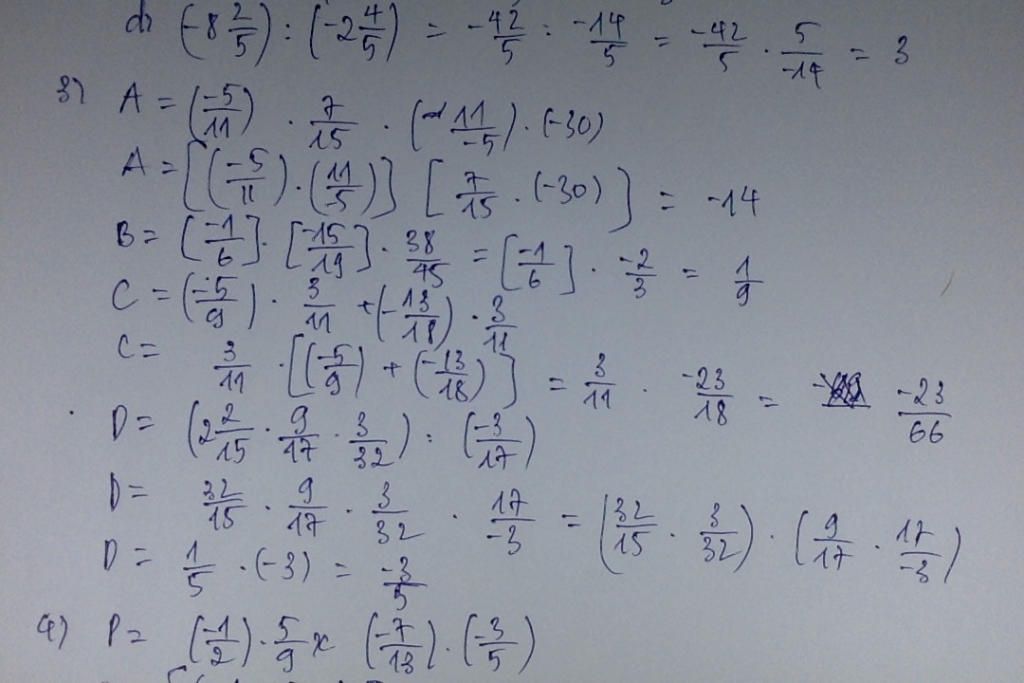 d) (-8 2/5) : (-2 4/5) = -42/5 : -14/5 = -42/5 . 5/-14 = 3
3) A = (-5/11) . 7/15 . (11/-5) . (-30)
A = [(-5/11) . (11/-5)] [7/15 . (-30)] = -14
B = [-1/6] . [-15/19] . 38/45 = [-1/6] . -2/3 = 1/9
C = (-5/9) . 3/11 + (-13/18) . 3/11
C = 3/11 . [(-5/9) + (-13/18)] = 3/11 . -23/18 = -23/66
D = (2 2/15 . 9/17 . 3/32) : (-3/17)
D = 32/15 . 9/17 . 3/32 . 17/-3 = (32/15 . 3/32) . (9/17 . 17/-3)
D = 1/5 . (-3) = -3/5
4) P = (-1/2) . 5/9 x (-7/13) . (-3/5)